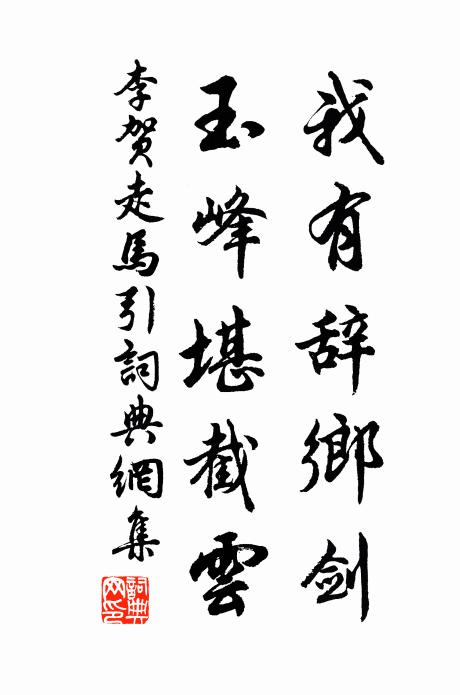 我有辞鄉剑
玉峰堪截雲
李贺走馬引詞典網集
詞典网印